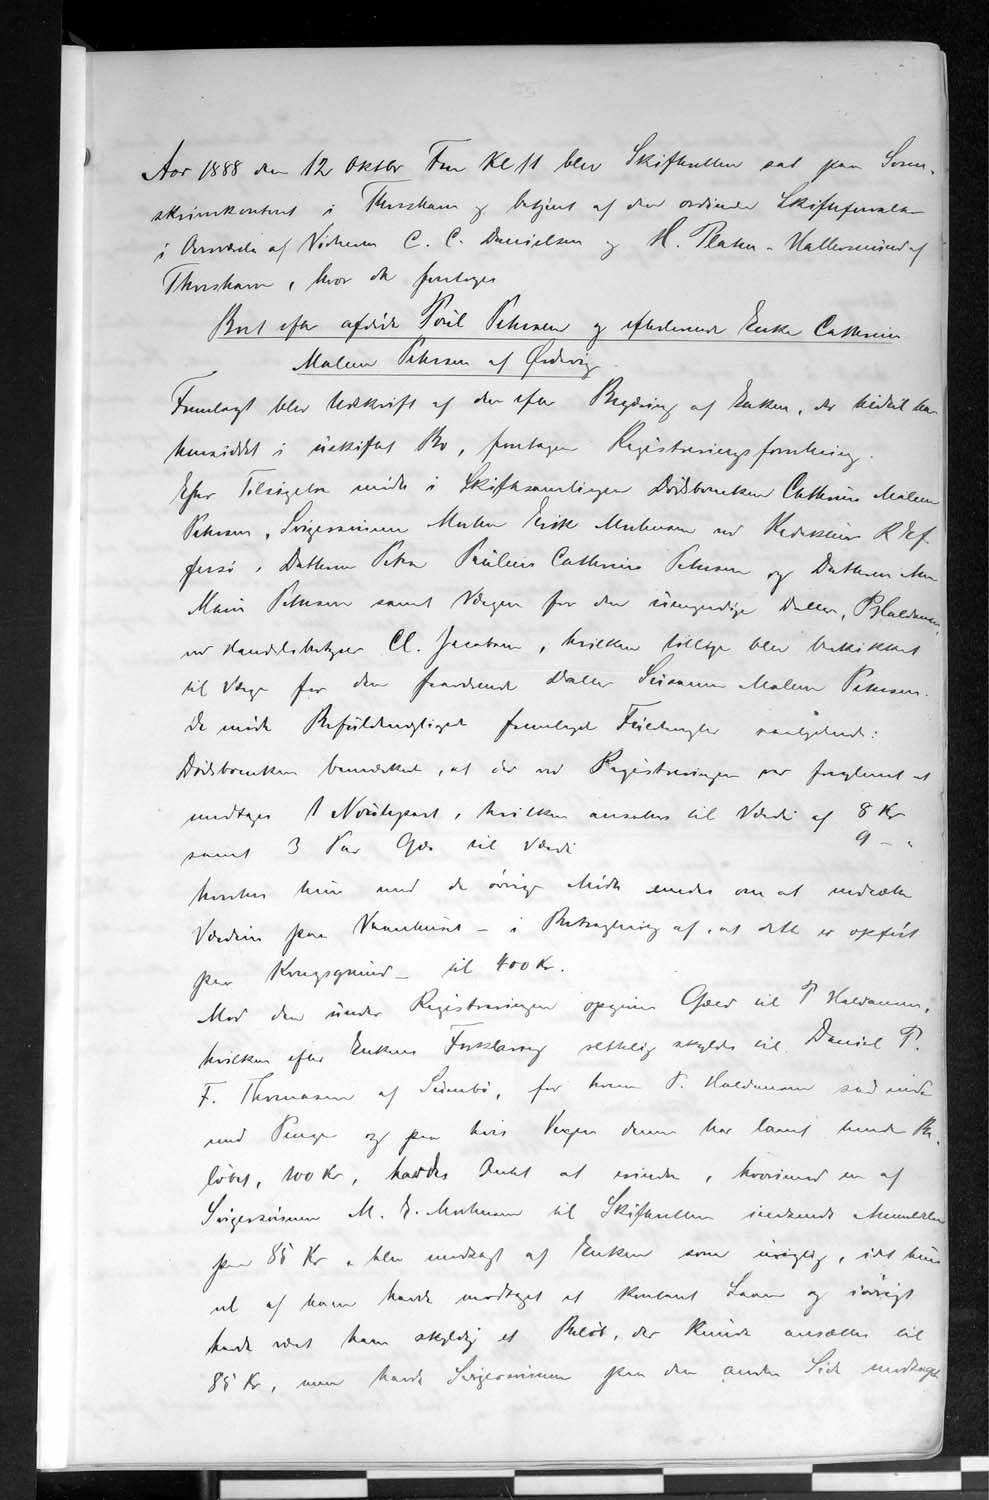 Aar 1888 den 12 Oktbr Fm Kl 11 blev Skifteretten sat paa Soren-
skriverkontoret i Thorshavn og betjent af den ordinære Skifteforvalter
i Overværelse af Vidnerne C. C. Danielsen og H. Platen-Hallermund af
Thorshavn, hvor da foretoges
Boet efter afdøde Poul Petersen og efterlevende Enke Cathrine
Malene Petersen af Ørdevig.
Fremlagt blev Udskrift af den efter Begæring af Enken, der hidtil har
hensiddet i uskiftet Bo, foretagne Registreringsforretning.
Efter Tilsigelse mødte i Skiftesamlingen Dødsboenken Cathrine Malene
Petersen, Svigersønnen Morten Erik Mortensen ved Redaktør R C Ef-
fersø, Datteren Petra Pauline Cathrine Petersen og Datteren
Marie Petersen samt Værgen for den umyndige Datter, P Haldansen,
ved Handelsbetjent Cl. Jacobsen, hvilken tillige blev beskikket
til Værge for den fraværende Datter Susanne Malene Petersen.
De mødte Befuldmægtigede fremlagde Fuldmagter saalydende:
Dødsboenken bemærkede, at der ved Registreringen var forglemt at
medtages 1 Nøstepart, hvilken ansættes til Værdi af 8 Kr
samt 3 Par Gæs til Værdi 9 - "
hvorhos hun med de øvrige Mødte enedes om at nedsætte
Værdien paa Vaanhuset - i Betragtning af, at dette er opført
paa Kongsgrund - til 400 Kr.
Mod den under Registreringen opgivne Gæld til P Haldansen,
hvilken efter Enkens Forklaring rettelig skyldes til Daniel P.
F. Thomasen af Sumbø, for hvem P. Haldansen sad inde
med Penge og paa hvis Vegne denne har laant hende Be-
løbet, 100 Kr, havdes Intet at erindre, hvorimod en af
Svigersønnen M. E. Mortensen til Skifteretten indsendt Anmeldelse
paa 85 Kr, blev modsagt af Enken som urigtig, idet hun
vel af ham havde modtaget et kontant Laan og iøvrigt
havde været ham skyldig et Beløb, der kunde ansættes til
85 Kr, men havde Svigersønnen paa den anden Side modtaget